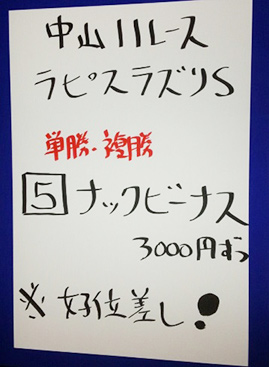 中山11レース
ラピスラズリS
単勝・複勝
5 ナックビーナス
3000円ずつ
※好位差し!